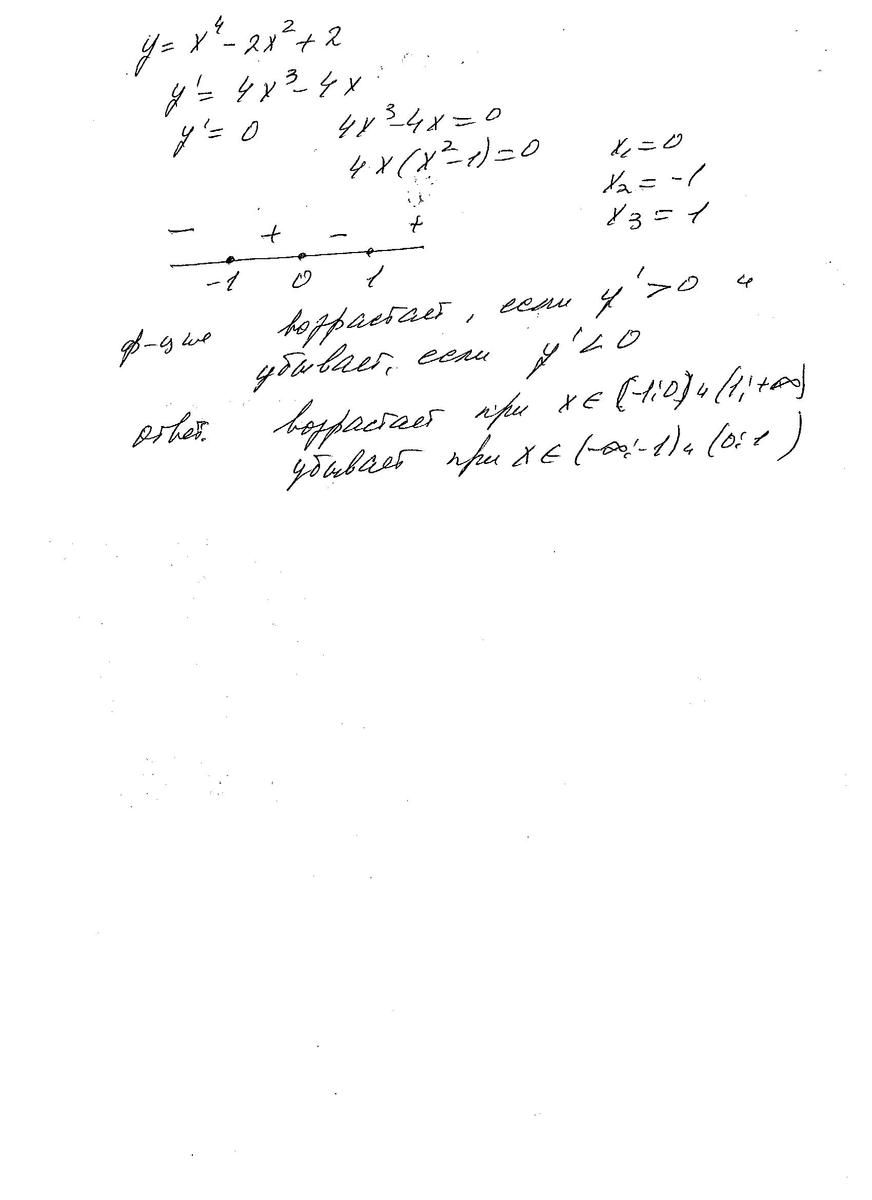 y = x⁴ - 2x² + 2
y' = 4x³ - 4x
y' = 0 4x³ - 4x = 0
4x(x² - 1) = 0 x₁ = 0
x₂ = -1
x₃ = 1
- + - +
-1 0 1
ф-ция возрастает, если y' > 0 и
убывает, если y' < 0
ответ. возрастает при x ∈ (-1; 0) и (1; +∞)
убывает при x ∈ (-∞; -1) и (0; 1)